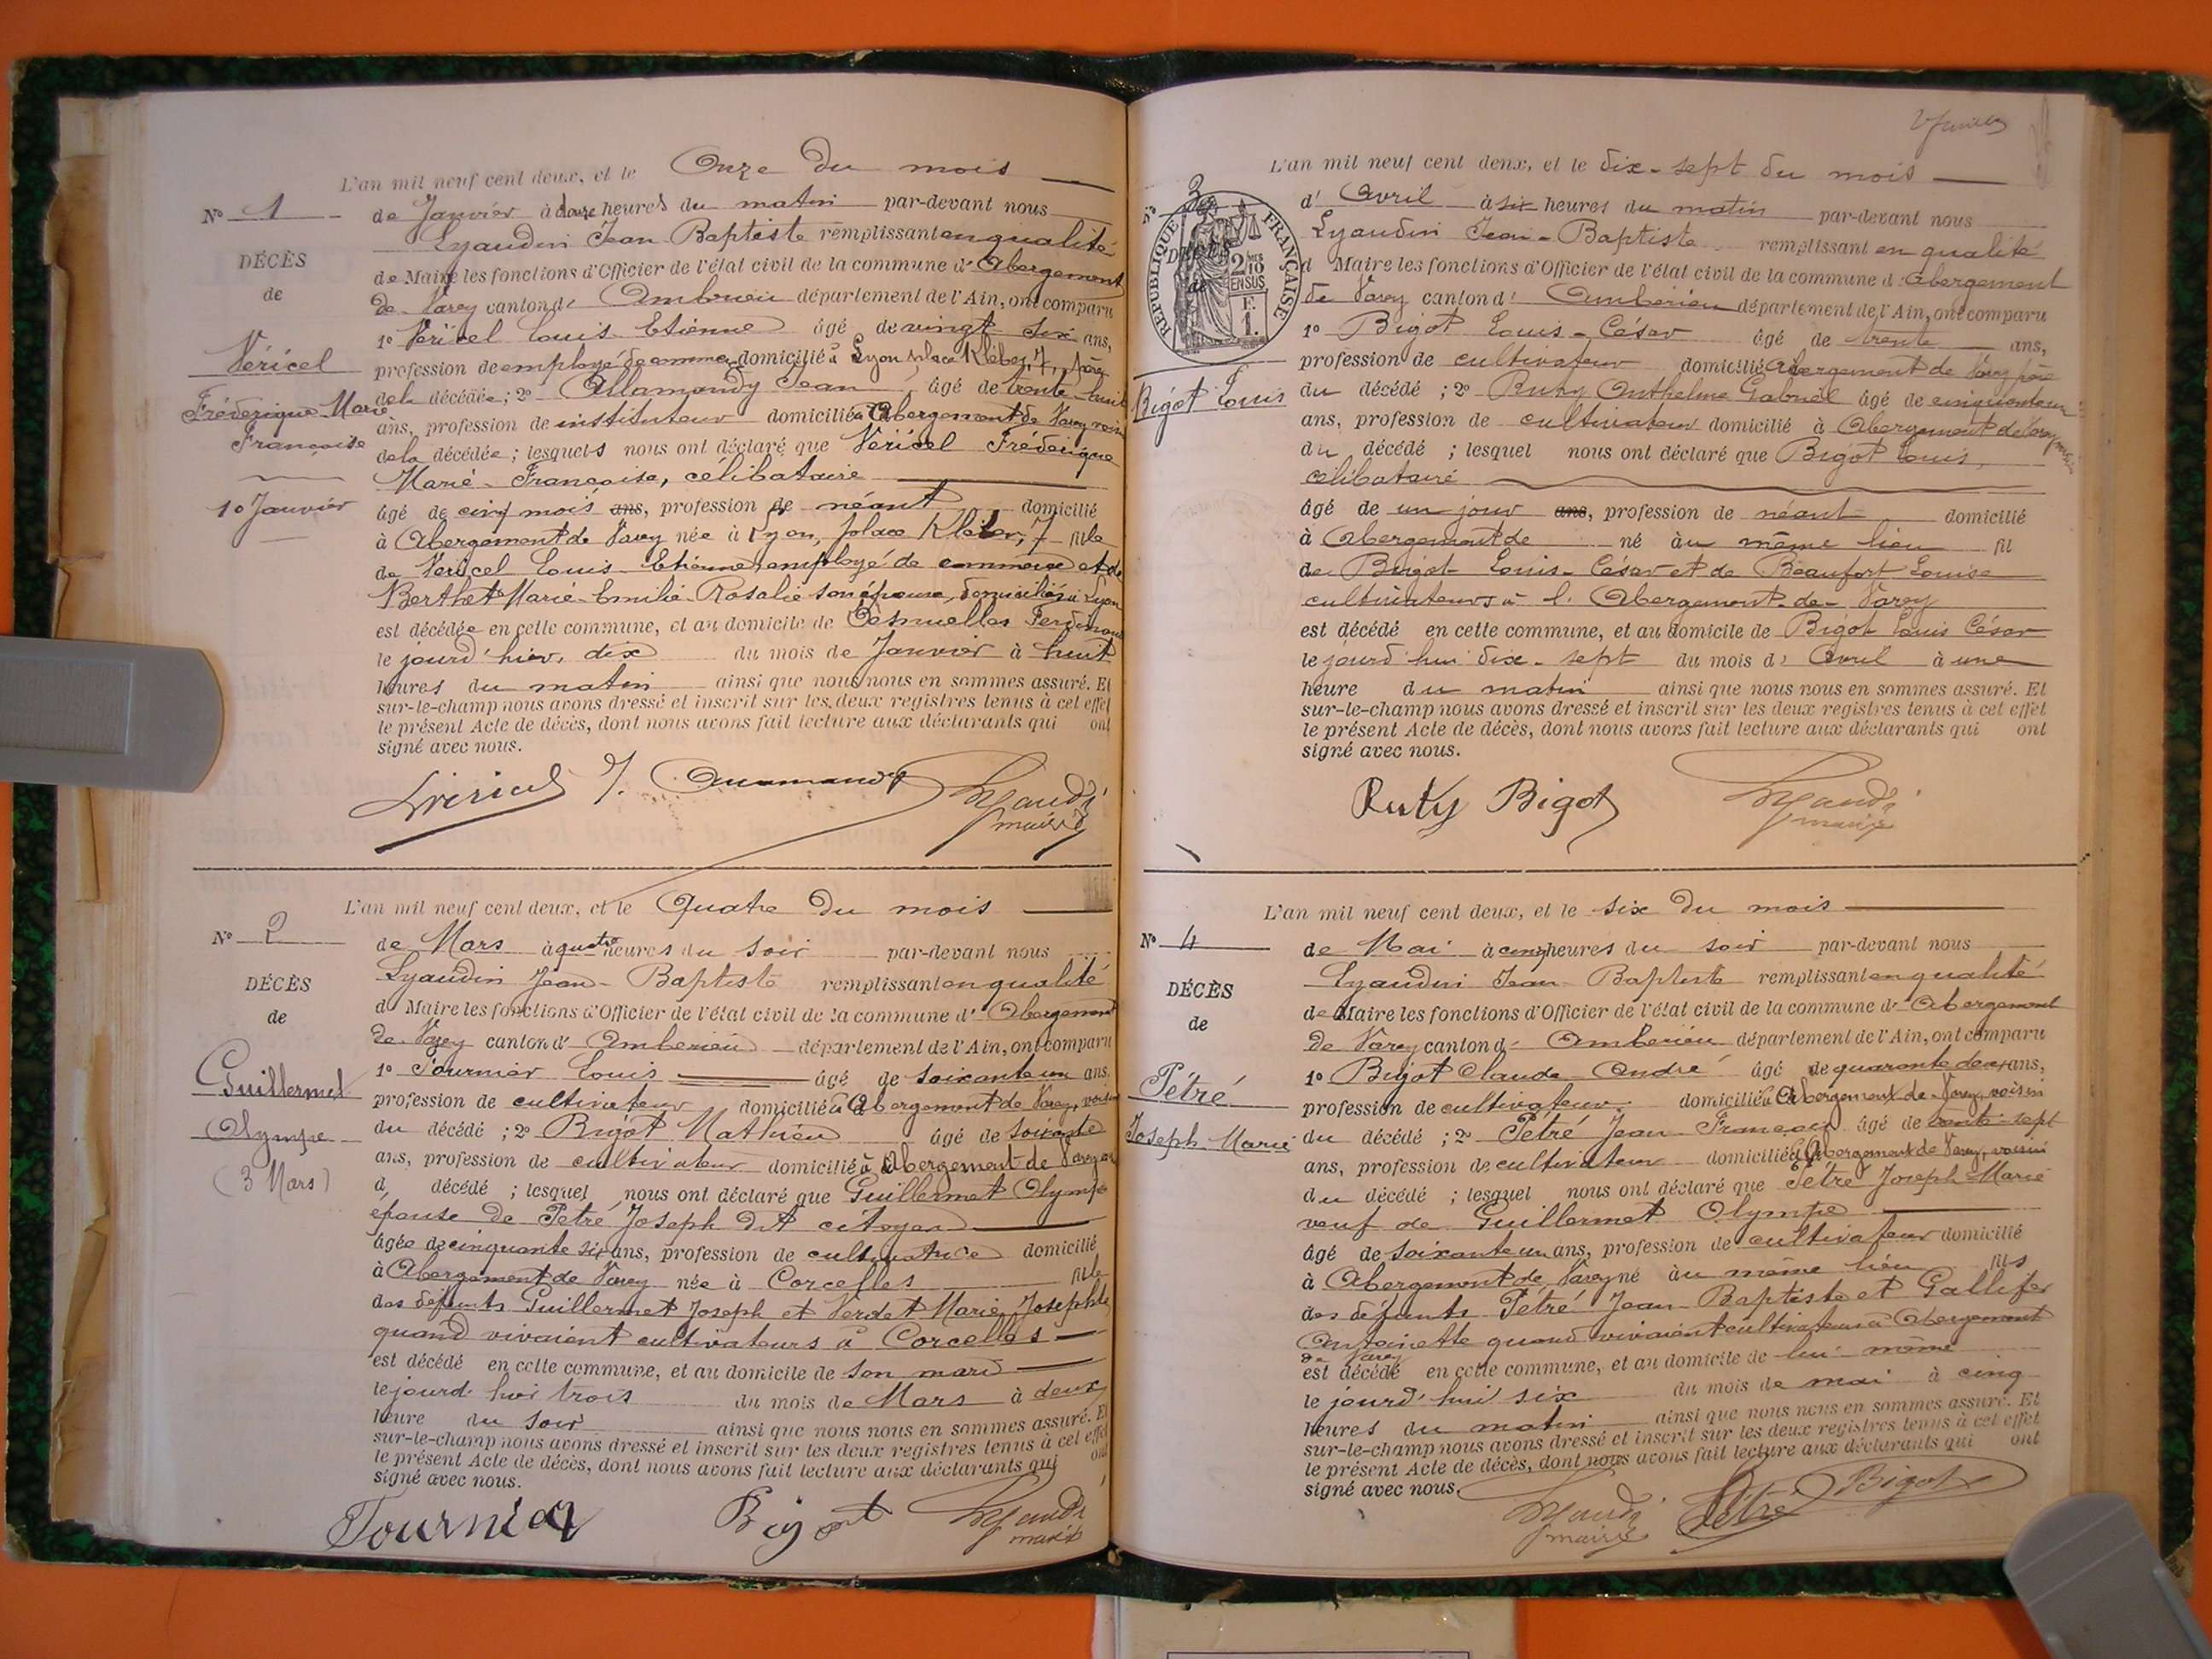 L'an mil neuf cent deux, et le Onze du mois
N° 1
de Janvier à douze heures du matin par-devant nous
Lyaudin Jean-Baptiste remplissant en qualité
DÉCÈS
de Maire les fonctions d'Officier de l'état civil de la commune d'Abergement
de
de Varey canton d' Ambérieu département de l'Ain, ont comparu
1° Véricel Louis-Etienne âgé de vingt six ans,
Véricel
profession de employé de commerce domicilié à Lyon place Kléber, 7, père
Fréderique Marie
de la décédée; 2° Allamondy Jean âgé de trente-huit
ans, profession de instituteur domicilié à Abergement de Varey voisin
Françoise
de la décédée; lesquels nous ont déclaré que Véricel Fréderique
Marie-Françoise, célibataire
10 Janvier
âgé de cinq mois ans, profession de néant domicilié
à Abergement de Varey née à Lyon, place Kléber, 7 fille
de Véricel Louis-Etienne employé de commerce et de
Berthet Marie-Emilie-Rosalie son épouse, domiciliés à Lyon
est décédée en cette commune, et au domicile de Ferdinand
le jourd'hier, dix du mois de Janvier à huit
heures du matin ainsi que nous nous en sommes assuré. Et
sur-le-champ nous avons dressé et inscrit sur les deux registres tenus à cet effet
le présent Acte de décès, dont nous avons fait lecture aux déclarants qui ont
signé avec nous.
Lvéricel J. Lyaudi
maire
L'an mil neuf cent deux, et le Quatre du mois
N° 2
de Mars à quatre heures du soir par-devant nous
Lyaudin Jean-Baptiste remplissant en qualité
DÉCÈS
d Maire les fonctions d'Officier de l'état civil de la commune d' Abergement
de
de Varey canton d' Ambérieu département de l'Ain, ont comparu
1° Tournier Louis âgé de soixante un ans.
Guillermet
profession de cultivateur domicilié à Abergement de Varey, voisin
Olympe
du décédé; 2° Bigot Mathieu âgé de soixante
ans, profession de cultivateur domicilié à Abergement de Varey
(3 Mars)
d décédé; lesquel nous ont déclaré que Guillermet Olympe
épouse de Pétré Joseph dit citoyen
âgée de cinquante six ans, profession de cultivatrice domicilié
à Abergement de Varey née à Corcelles fille
des défunts Guillermet Joseph et Verdet Marie Josephte
quand vivaient cultivateurs à Corcelles
est décédé en cette commune, et au domicile de son mari
le jourd'hui trois du mois de Mars à deux
heure du soir ainsi que nous nous en sommes assuré. Et
sur-le-champ nous avons dressé et inscrit sur les deux registres tenus à cet effet
le présent Acte de décès, dont nous avons fait lecture aux déclarants qui ont
signé avec nous.
Tournier Bigot Lyaudi
maire
L'an mil neuf cent deux, et le dix-sept du mois
N° 3
d' Avril à six heures du matin par-devant nous
DÉCÈS
de
RÉPUBLIQUE FRANÇAISE
2/10 EN SUS
F. 1.
Lyaudin Jean-Baptiste remplissant en qualité
d Maire les fonctions d'Officier de l'état civil de la commune d'Abergement
de Varey canton d' Ambérieu département de l'Ain, ont comparu
1° Bigot Louis-César âgé de trente ans,
profession de cultivateur domicilié Abergement de Varey père
Bigot Louis
du décédé; 2° Ruty Anthelme Gabriel âgé de
ans, profession de cultivateur domicilié à Abergement de Varey
du décédé; lesquel nous ont déclaré que Bigot Louis,
célibataire
âgé de un jour ans, profession de néant domicilié
à Abergement de né au même lieu fil
de Bigot Louis-César et de Beaufort Louise
cultivateurs à l'Abergement-de-Varey
est décédé en cette commune, et au domicile de Bigot Louis César
le jourd'hui dix-sept du mois d' Avril à une
heure du matin ainsi que nous nous en sommes assuré. Et
sur-le-champ nous avons dressé et inscrit sur les deux registres tenus à cet effet
le présent Acte de décès, dont nous avons fait lecture aux déclarants qui ont
signé avec nous.
Ruty Bigot Lyaudi
maire
L'an mil neuf cent deux, et le six du mois
N° 4
de Mai à cinq heures du soir par-devant nous
Lyaudin Jean-Baptiste remplissant en qualité
DÉCÈS
de Maire les fonctions d'Officier de l'état civil de la commune d' Abergement
de
de Varey canton d' Ambérieu département de l'Ain, ont comparu
1° Bigot Claude-André âgé de quarante deux ans,
Pétré
profession de cultivateur domicilié à Abergement-de-Varey, voisin
Joseph Marie
du décédé; 2° Pétré Jean-François âgé de sept
ans, profession de cultivateur domicilié à Abergement de Varey, voisin
du décédé; lesquel nous ont déclaré que Pétré Joseph-Marie
veuf de Guillermet Olympe
âgé de soixante un ans, profession de cultivateur domicilié
à Abergement de Varey né au même lieu fils
des défunts Pétré Jean-Baptiste et Gallifer
Antoinette quand vivaient cultivateurs à Abergement
de Varey
est décédé en cette commune, et au domicile de lui-même
le jourd'hui six du mois de mai à cinq
heures du matin ainsi que nous nous en sommes assuré. Et
sur-le-champ nous avons dressé et inscrit sur les deux registres tenus à cet effet
le présent Acte de décès, dont nous avons fait lecture aux déclarants qui ont
signé avec nous.
Lyaudi Pétré Bigot
maire